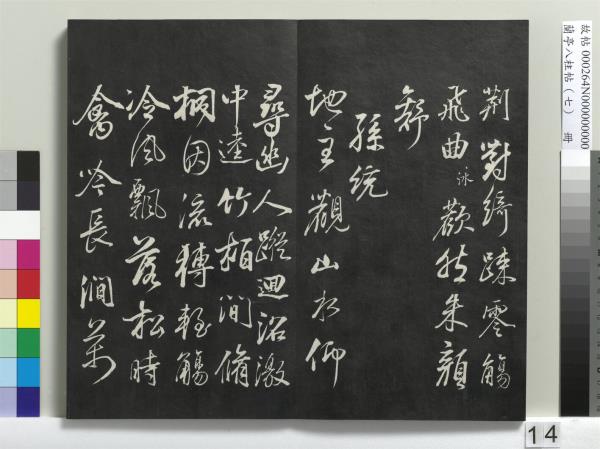 荆對綺踈零觴
飛曲歡然朱顔
舒
孫統
地主觀山水仰
尋幽人蹤迴沼激
中逵竹柏間脩
桐因流轉輕觴
冷風飄落松時
禽吟長澗萬
故帖 000264N000000000
蘭亭八柱帖(七) 冊
14